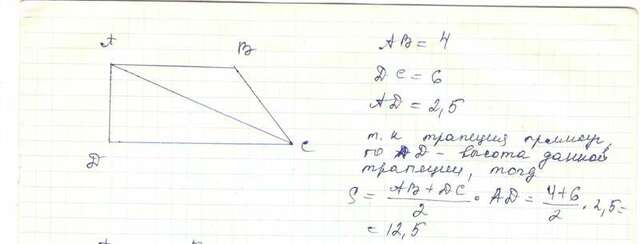 A
B
C
D
AB = 4
DC = 6
AD = 2,5
т. к трапеция прямоуг,
то AD – высота данной
трапеции, тогд
S = (AB + DC)/2 · AD = (4+6)/2 · 2,5 =
= 12,5